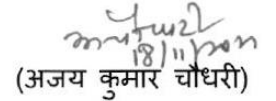 18/11/2011
(अजय कुमार चौधरी)